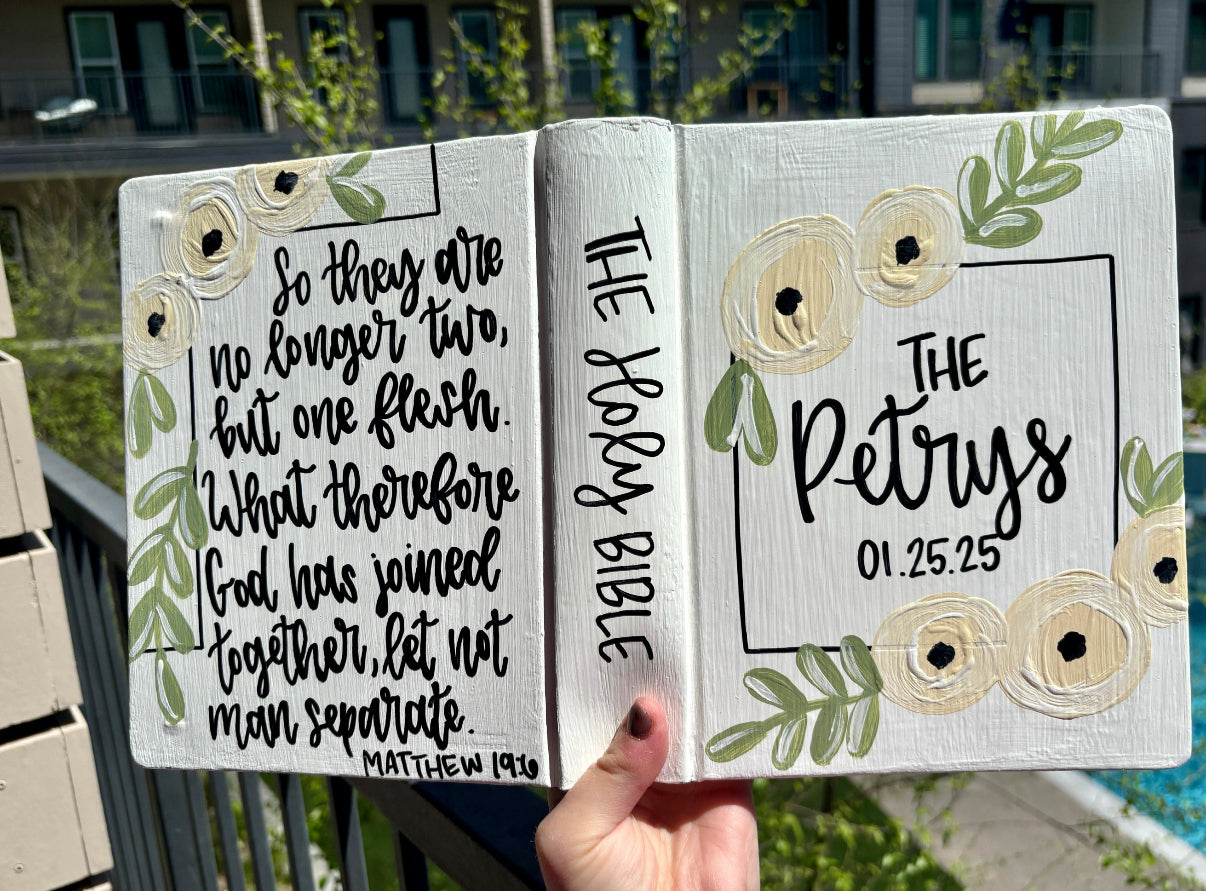 So they are
no longer two,
but one flesh.
What therefore
God has joined
together, let not
man separate.
MATTHEW 19:6
THE Holy BIBLE
THE
Petrys
01.25.25